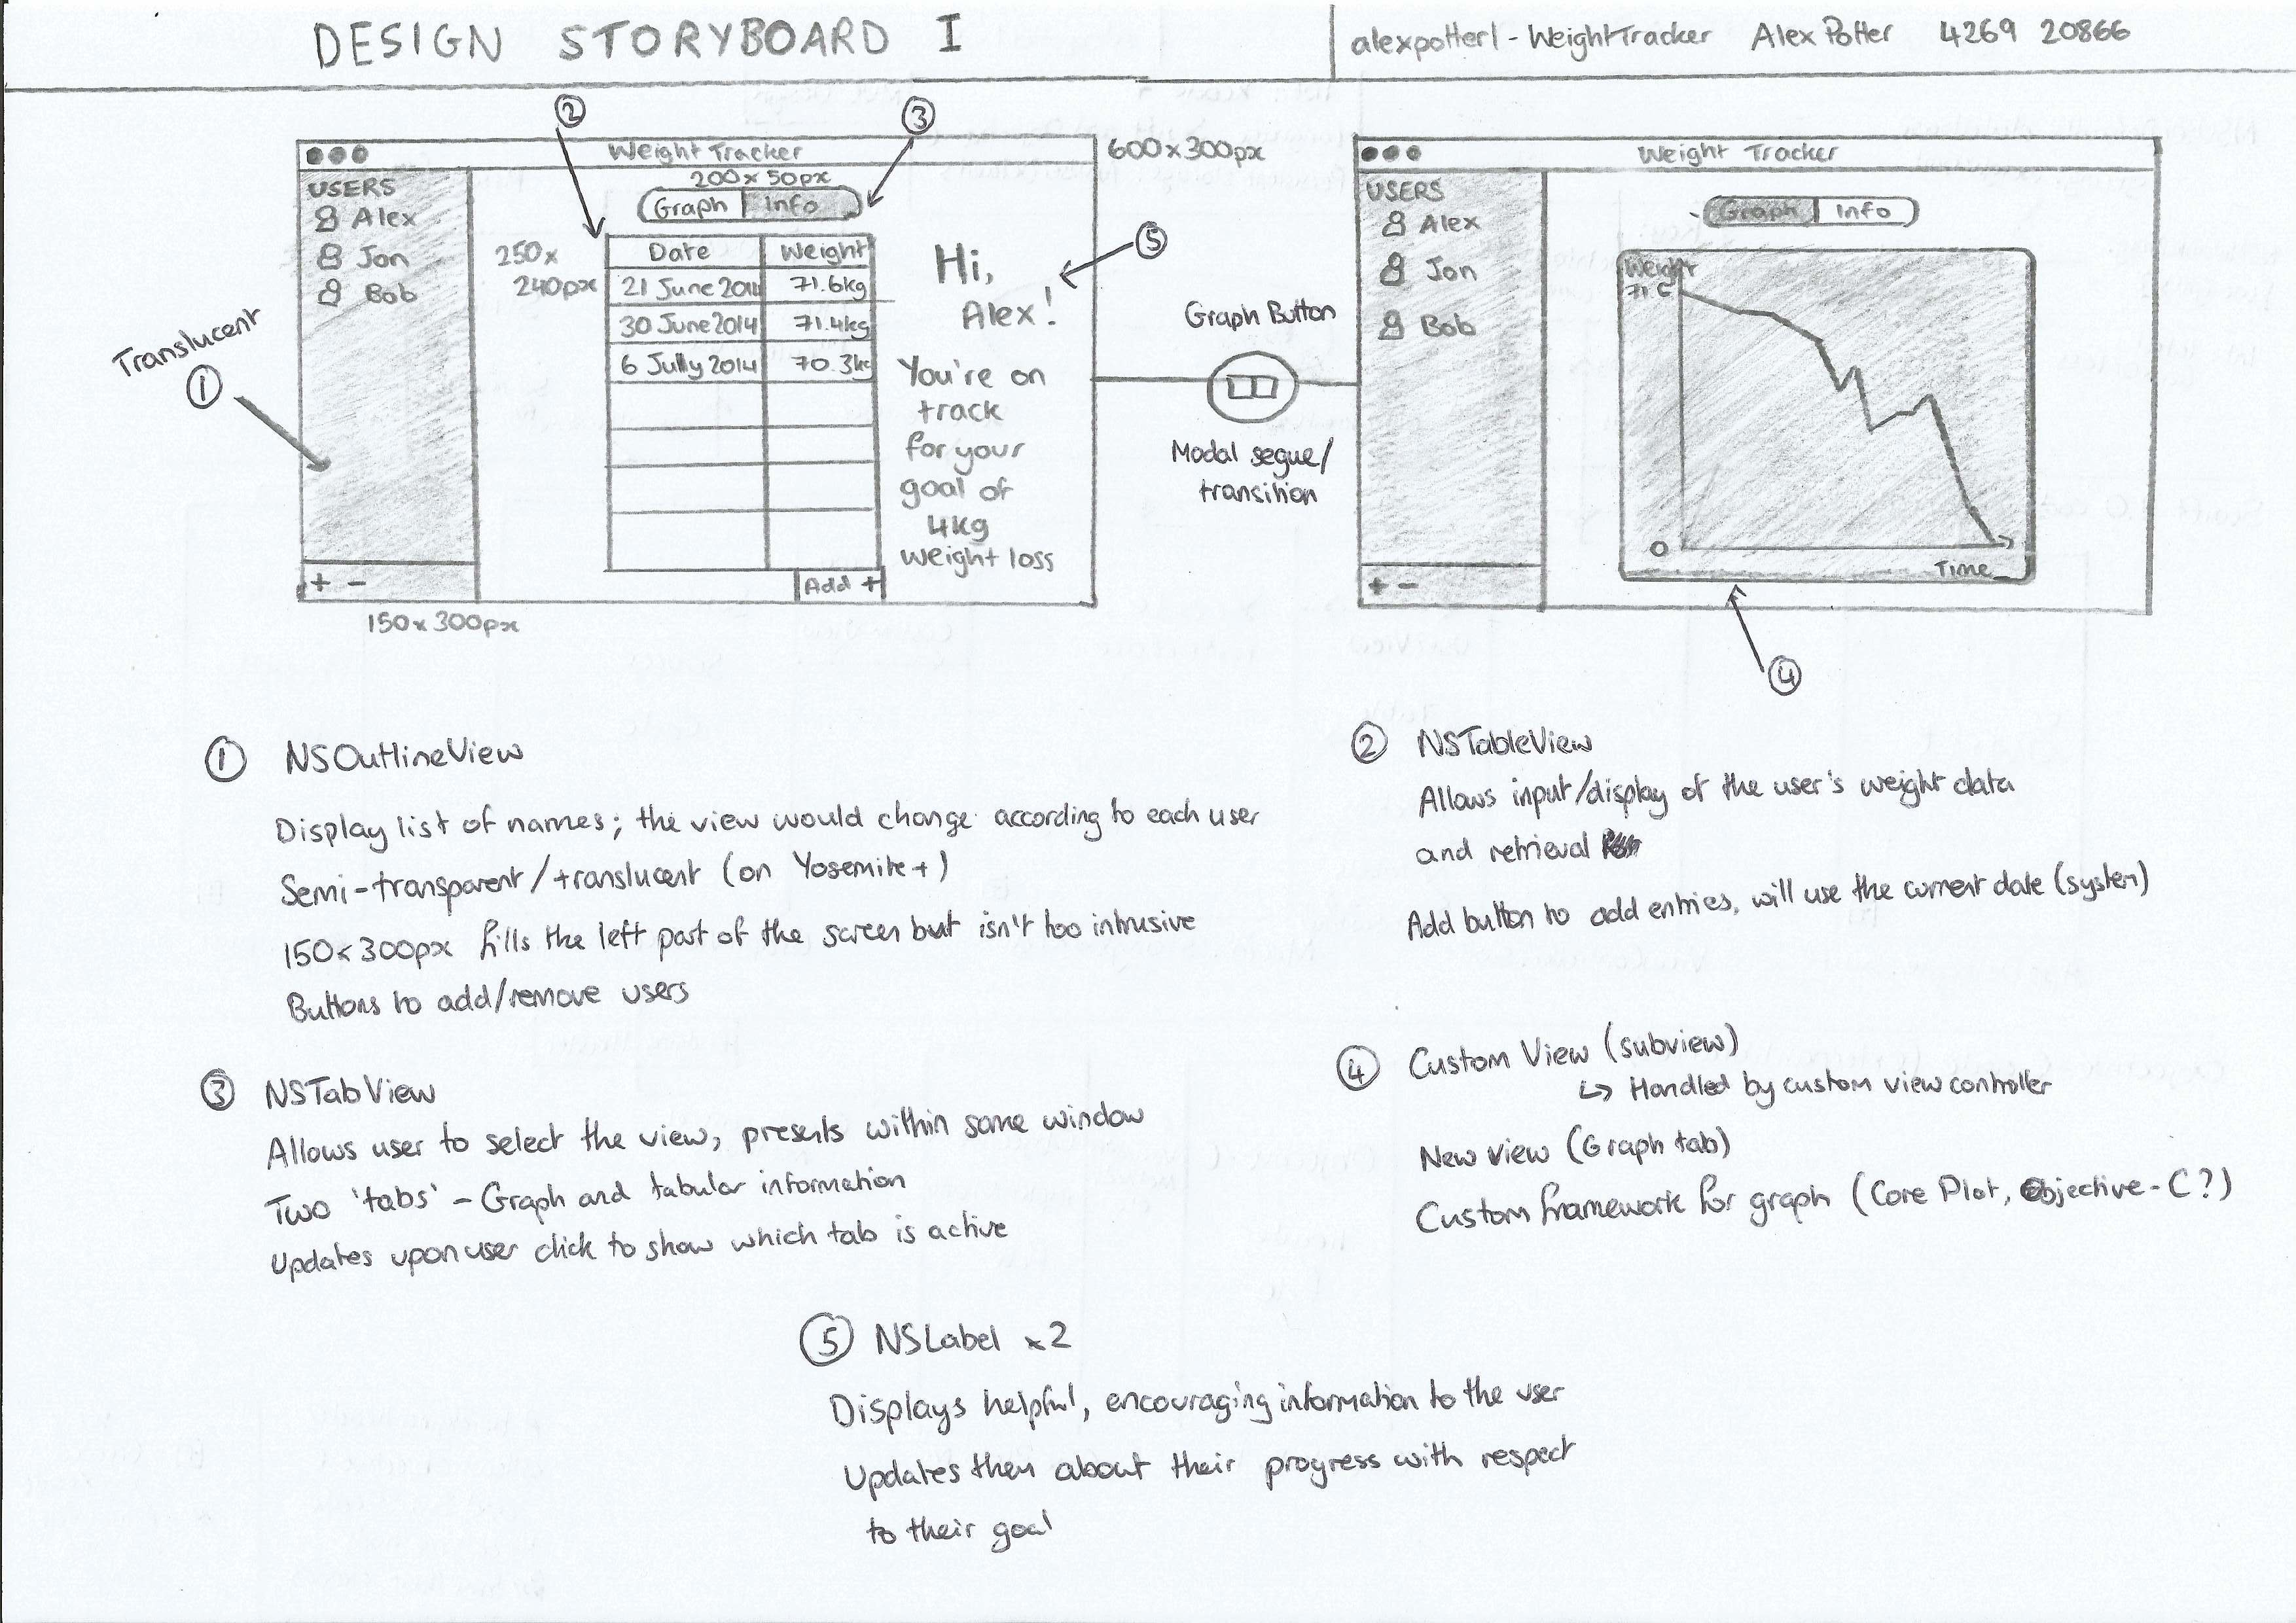 DESIGN STORYBOARD I
alexpotter1 - WeightTracker Alex Potter 4269 20866
② ③
Weight Tracker
600x300px
USERS
Alex
Jon
Bob
200x50px
Graph Info
250x
240px
Date Weight
21 June 2014 71.6kg
30 June 2014 71.4kg
6 Jully 2014 70.3kg
Add +
Hi,
Alex!
⑤
You're on
track
for your
goal of
4kg
weight loss
Translucent
①
+ -
150x300px
Graph Button
Modal segue/
transition
Weight Tracker
USERS
Alex
Jon
Bob
Graph Info
Weight
71.6
0
Time
+ -
④
① NSOutlineView
Display list of names; the view would change according to each user
Semi-transparent/translucent (on Yosemite+)
150x300px fills the left part of the screen but isn't too intrusive
Buttons to add/remove users
② NSTableView
Allows input/display of the user's weight data
and retrieval
Add button to add entries, will use the current date (system)
③ NSTabView
Allows user to select the view, presents within same window
Two 'tabs' - Graph and tabular information
Updates upon user click to show which tab is active
④ Custom View (subview)
↳ Handled by custom view controller
New view (Graph tab)
Custom framework for graph (Core Plot, Objective-C?)
⑤ NSLabel x2
Displays helpful, encouraging information to the user
Updates them about their progress with respect
to their goal